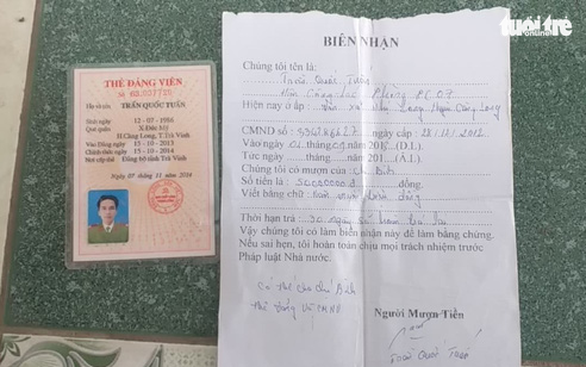 tuổi trẻ
online
THẺ ĐẢNG VIÊN
Số 63.057720
Họ và tên TRẦN QUỐC TUẤN
Sinh ngày 12 - 07 - 1986
Quê quán X.Đức Mỹ
H.Càng Long, T.Trà Vinh
Vào Đảng ngày 15 - 10 - 2013
Chính thức ngày 15 - 10 - 2014
Nơi cấp thẻ Đảng bộ tỉnh Trà Vinh
Ngày 07 tháng 11 năm 2014
BIÊN NHẬN
Chúng tôi tên là:
Trần Quốc Tuấn
Hiện Công tác Phòng PC 07
Hiện nay ở ấp :
CMND số : 334286627 ngày cấp : 28/12/2012
Vào ngày 01 tháng 09 năm 201 (D.L).
Tức ngày tháng năm (Â.L).
Chúng tôi có mượn của chị Bích
Số tiền là : 50000000 đ đồng.
Viết bằng chữ : Năm mươi triệu đồng
Thời hạn trả : 30 ngày sẽ hoàn trả lại
Vậy chúng tôi có làm biên nhận này để làm bằng chứng.
Nếu sai hẹn, tôi hoàn toàn chịu mọi trách nhiệm trước
Pháp luật Nhà nước.
Có thế cho chị Bích
thẻ Đảng và CMND
Người Mượn Tiền
Trần Quốc Tuấn